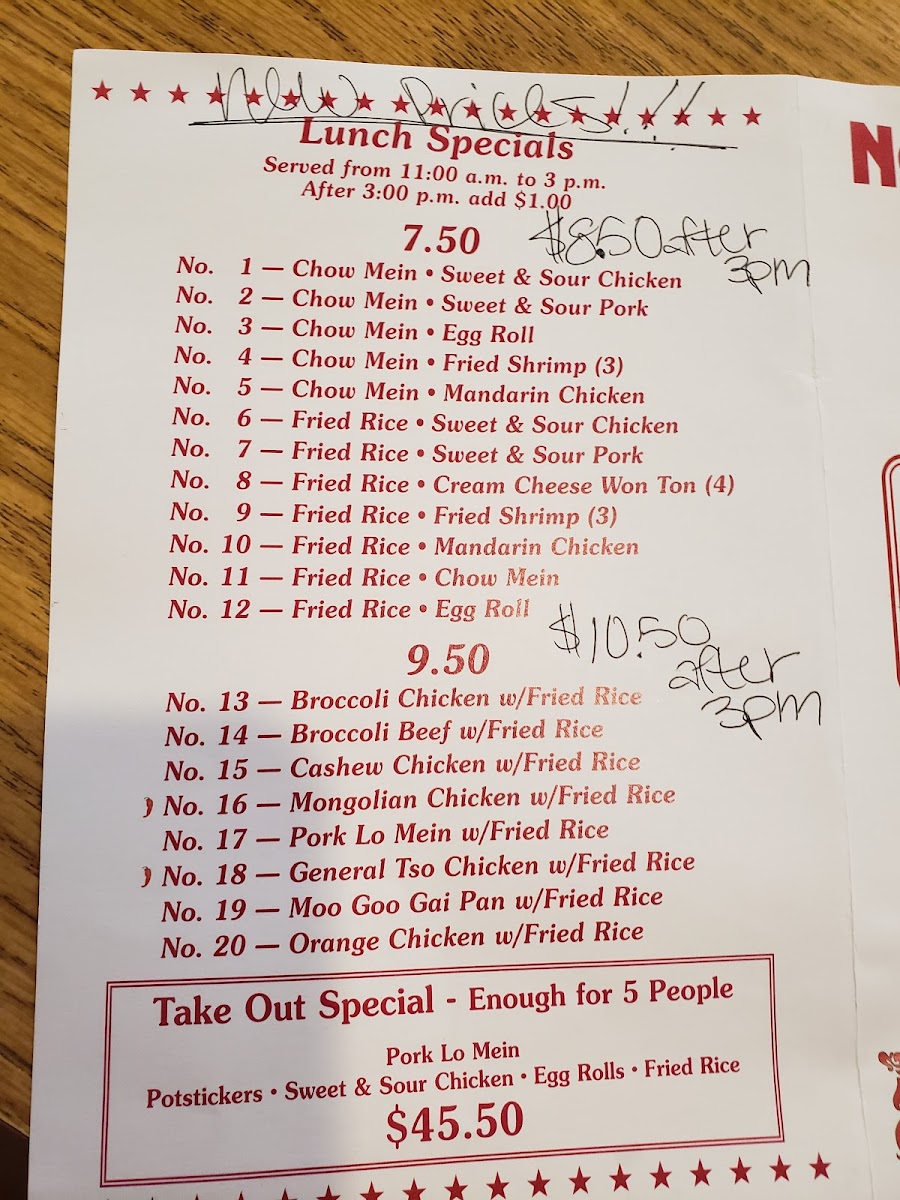 New Prices!!!
Lunch Specials
Served from 11:00 a.m. to 3 p.m.
After 3:00 p.m. add $1.00
7.50
$8.50 after
3pm
No. 1 — Chow Mein • Sweet & Sour Chicken
No. 2 — Chow Mein • Sweet & Sour Pork
No. 3 — Chow Mein • Egg Roll
No. 4 — Chow Mein • Fried Shrimp (3)
No. 5 — Chow Mein • Mandarin Chicken
No. 6 — Fried Rice • Sweet & Sour Chicken
No. 7 — Fried Rice • Sweet & Sour Pork
No. 8 — Fried Rice • Cream Cheese Won Ton (4)
No. 9 — Fried Rice • Fried Shrimp (3)
No. 10 — Fried Rice • Mandarin Chicken
No. 11 — Fried Rice • Chow Mein
No. 12 — Fried Rice • Egg Roll
9.50
$10.50
after
3pm
No. 13 — Broccoli Chicken w/Fried Rice
No. 14 — Broccoli Beef w/Fried Rice
No. 15 — Cashew Chicken w/Fried Rice
No. 16 — Mongolian Chicken w/Fried Rice
No. 17 — Pork Lo Mein w/Fried Rice
No. 18 — General Tso Chicken w/Fried Rice
No. 19 — Moo Goo Gai Pan w/Fried Rice
No. 20 — Orange Chicken w/Fried Rice
Take Out Special - Enough for 5 People
Pork Lo Mein
Potstickers • Sweet & Sour Chicken • Egg Rolls • Fried Rice
$45.50